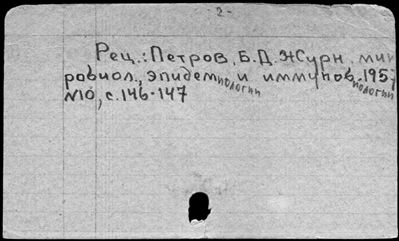 -2-
Рец.: Петров, Б.Д. Журн. мик
робиол., эпидемиологии и иммунобиологии. 195
№10, с.146-147